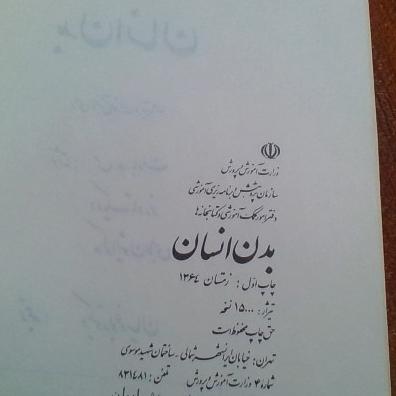 وزارت آموزش و پرورش
سازمان پژوهش و برنامه‌ریزی آموزشی
دفتر امور کمک آموزشی و کتابخانه‌ها
بدن انسان
چاپ اوّل : زمستان ۱۳۶۴
تیراژ : ۱۵۰۰۰ نسخه
حق چاپ محفوظ است
تهران : خیابان ایرانشهر شمالی - ساختمان شهید موسوی
شماره ۴ وزارت آموزش و پرورش تلفن : ۸۳۱۴۸۱